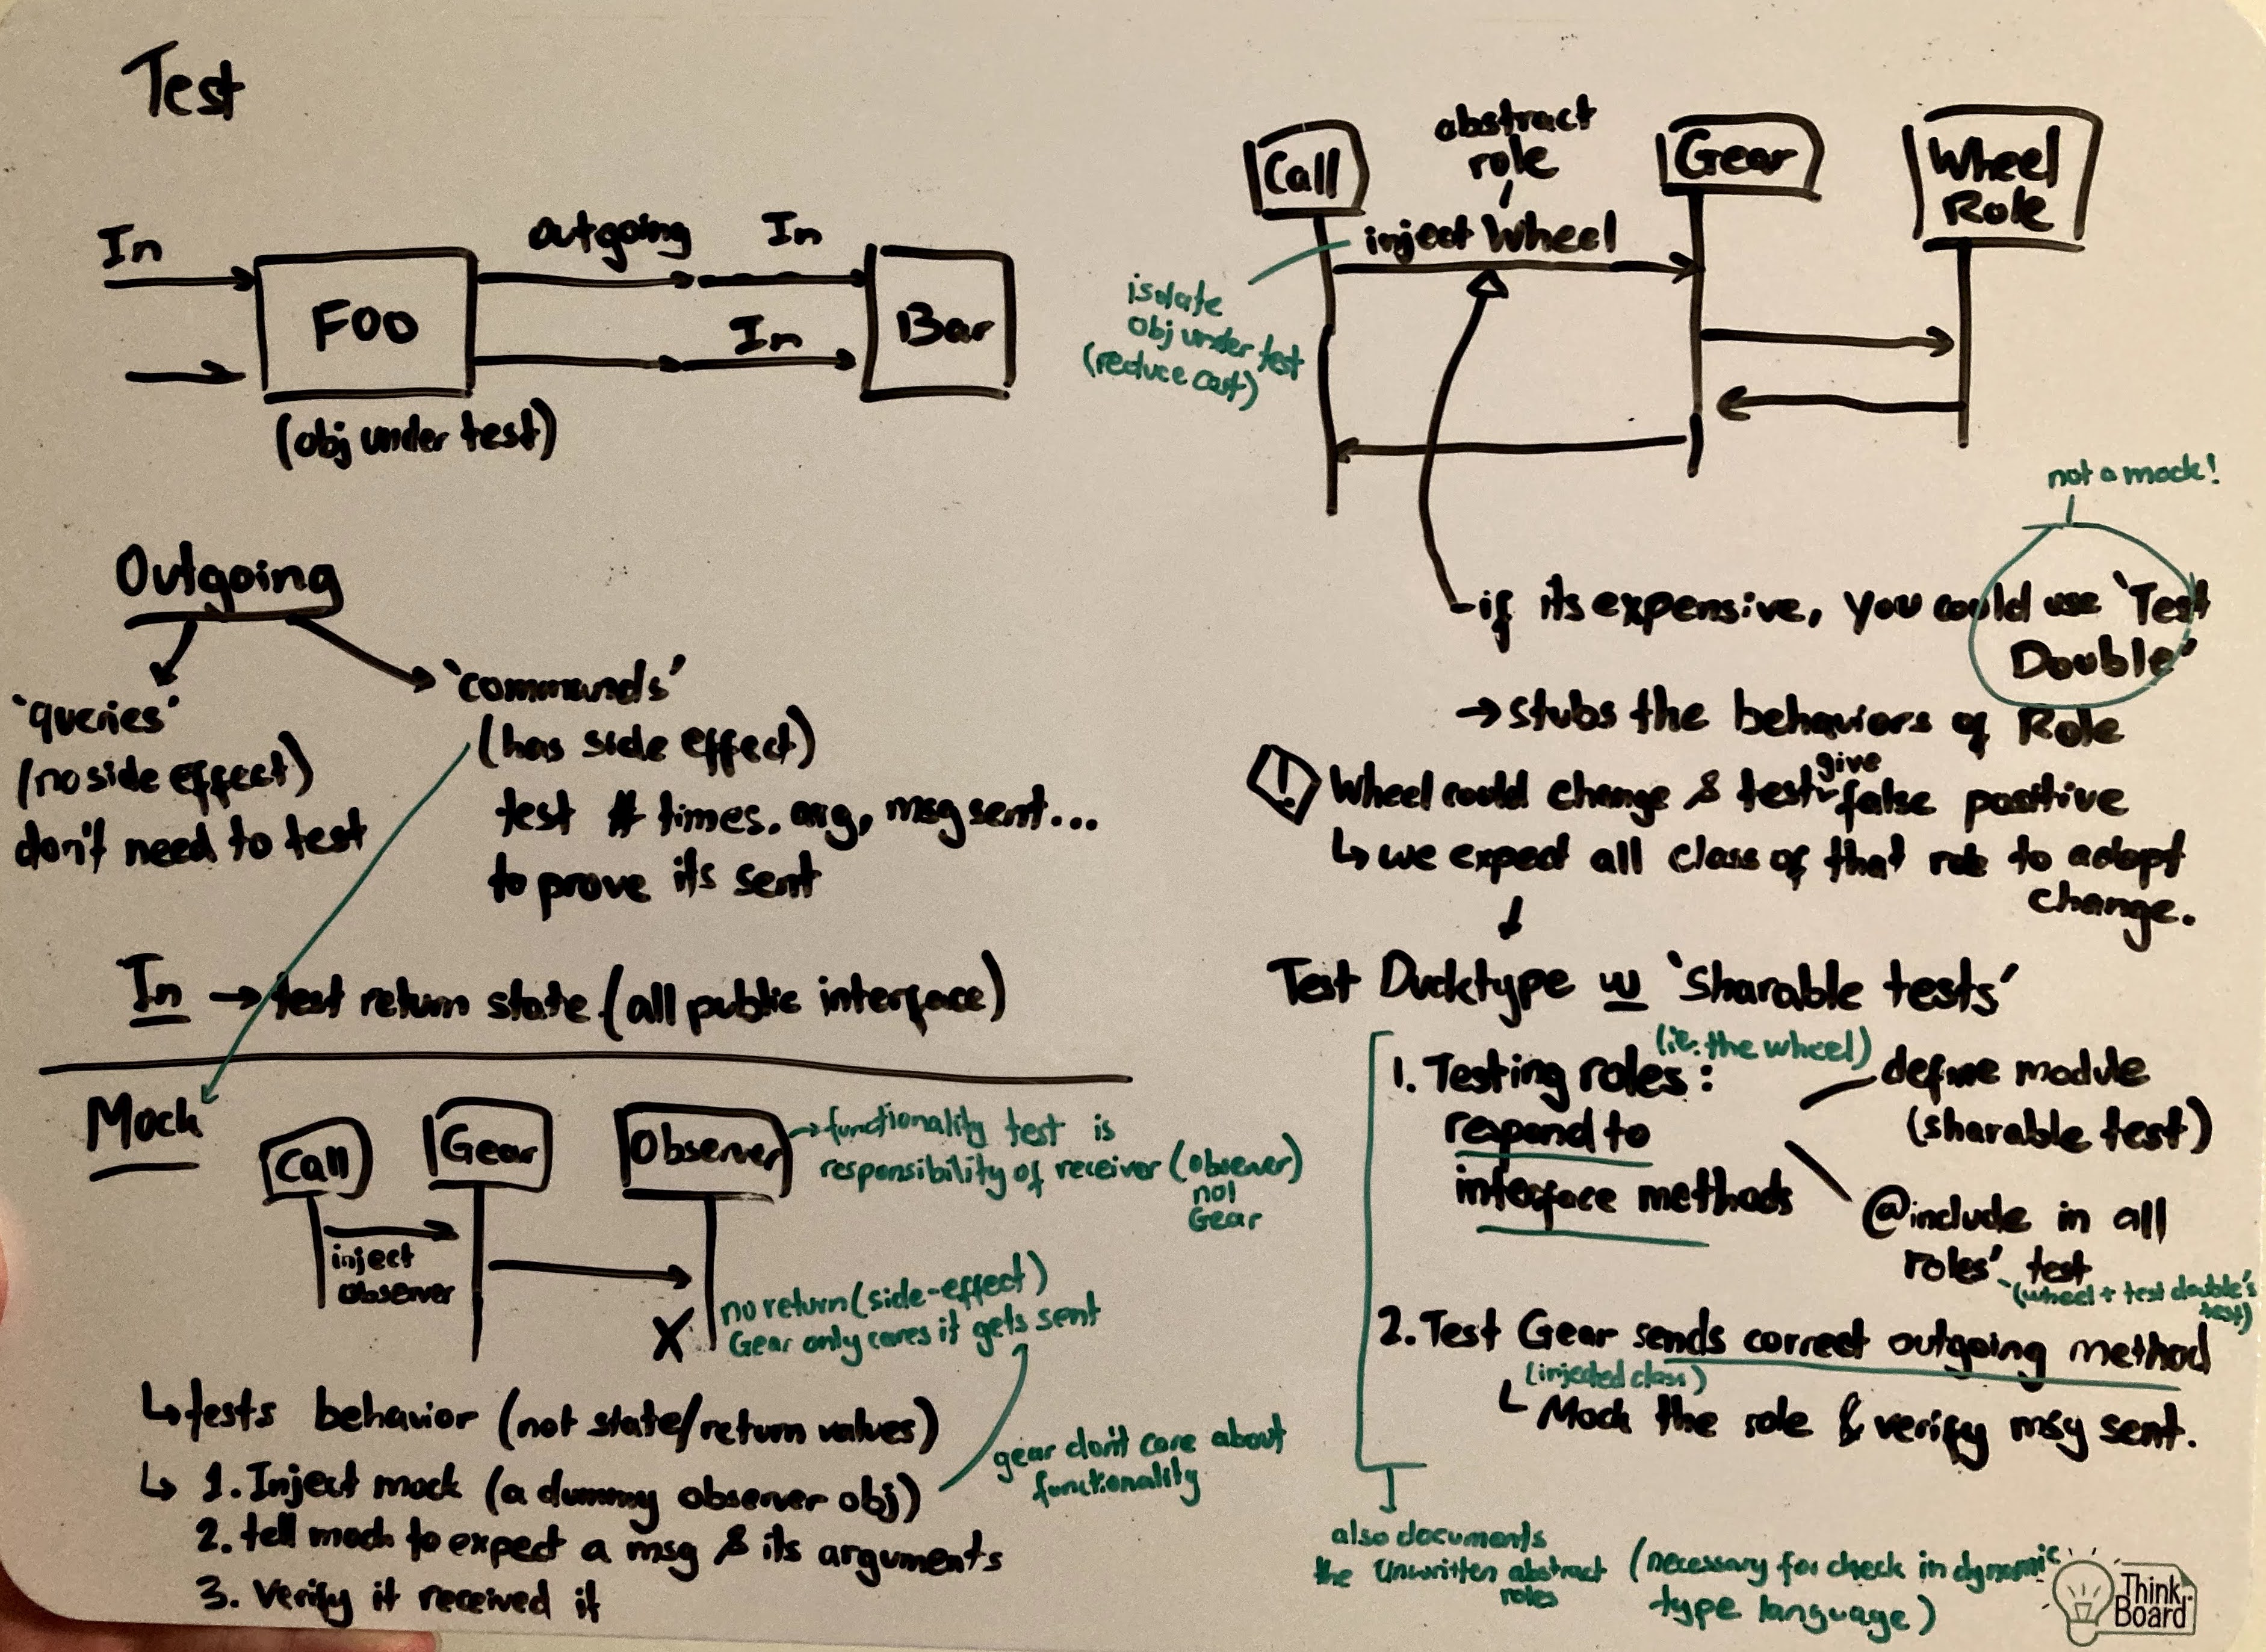 Test
In
outgoing
In
FOO
In
Bar
(obj under test)
Outgoing
'queries'
(no side effect)
don't need to test
'commands'
(has side effect)
test # times, arg, msg sent...
to prove its sent
In → test return state (all public interface)
Mock
Call
Gear
Observer
→ functionality test is
responsibility of receiver (observer)
not
Gear
inject
observer
X
no return (side-effect)
Gear only cares it gets sent
↳ tests behavior (not state/return values)
↳ 1. Inject mock (a dummy observer obj)
gear don't care about
functionality
2. tell mock to expect a msg & its arguments
3. Verify it received it
Call
abstract
role
Gear
Wheel
Role
inject Wheel
isolate
Obj under test
(reduce cost)
not a mock!
if its expensive, you could use 'Test
Double'
→ stubs the behaviors of Role
! Wheel could change & test give false positive
↳ we expect all class of that role to adopt
change.
Test Ducktype w 'Sharable tests'
(ie. the wheel)
1. Testing roles:
respond to
interface methods
define module
(sharable test)
@include in all
roles' test
(wheel + test double's
test)
2. Test Gear sends correct outgoing method
(injected class)
Mock the role & verify msg sent.
also documents
the Unwritten abstract
roles
(necessary for check in dynamic
type language)
Think
Board